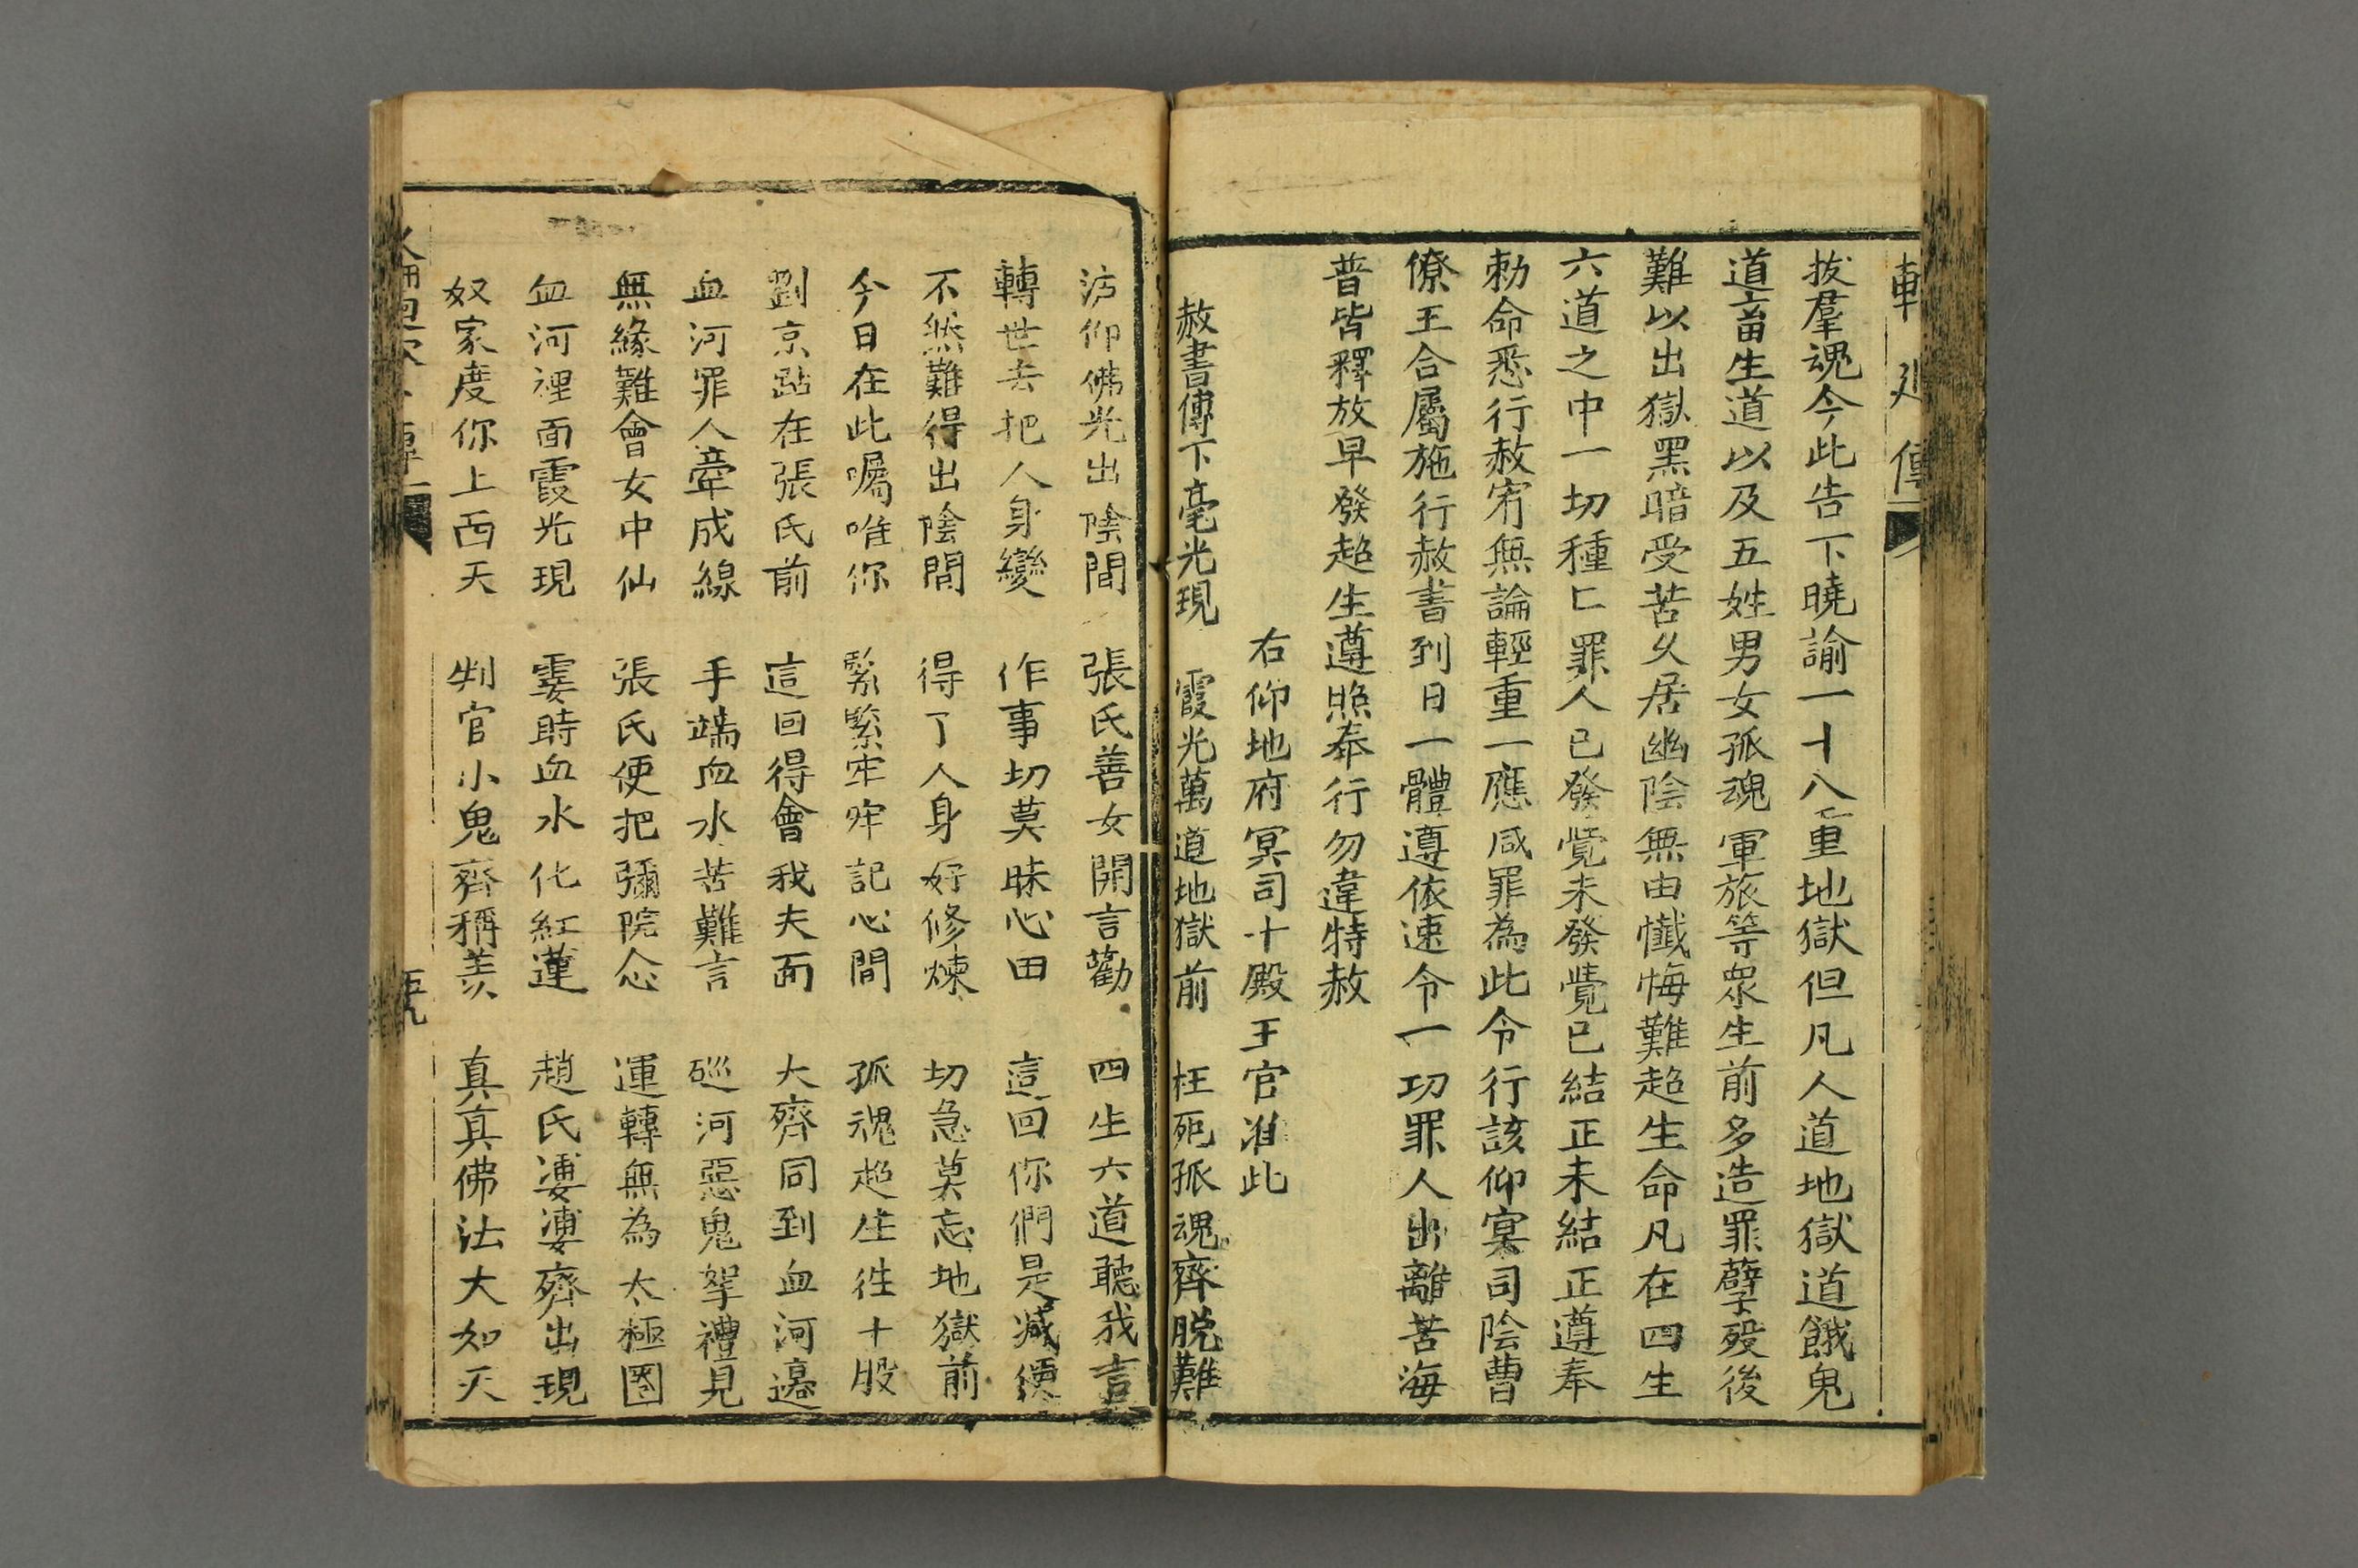 拔羣魂今此告下曉諭一十八重地獄但凡人道地獄道餓鬼
道畜生道以及五姓男女孤魂軍旅等眾生前多造罪孽歿後
難以出獄黑暗受苦久居幽陰無由懺悔難超生命凡在四生
六道之中一切種匕罪人已發覺未發覺已結正未結正遵奉
勅命悉行赦宥無論輕重一應咸罪為此令行該仰冥司陰曹
僚王合屬施行赦書到日一體遵依速令一切罪人出離苦海
普皆釋放早發超生遵照奉行勿違特赦
右仰地府冥司十殿王官准此
赦書傳下毫光現 霞光萬道地獄前 枉死孤魂齊脱難
沾仰佛光出陰間 張氏善女開言勸 四生六道聽我言
轉世去把人身變 作事切莫昧心田 這回你們是減便
不然難得出陰間 得了人身好修煉 切急莫忘地獄前
今日在此囑唯你 緊緊牢牢記心間 孤魂超生往十殿
劉京跕在張氏前 這回得會我夫面 大齊同到血河邊
血河罪人牽成線 手端血水苦難言 巡河惡鬼挐禮見
無緣難會女中仙 張氏便把彌陀念 運轉無為太極圈
血河裡面霞光現 霎時血水化紅蓮 趙氏凄凄齊出現
奴家度你上西天 判官小鬼齊稱羨 真真佛法大如天
五九